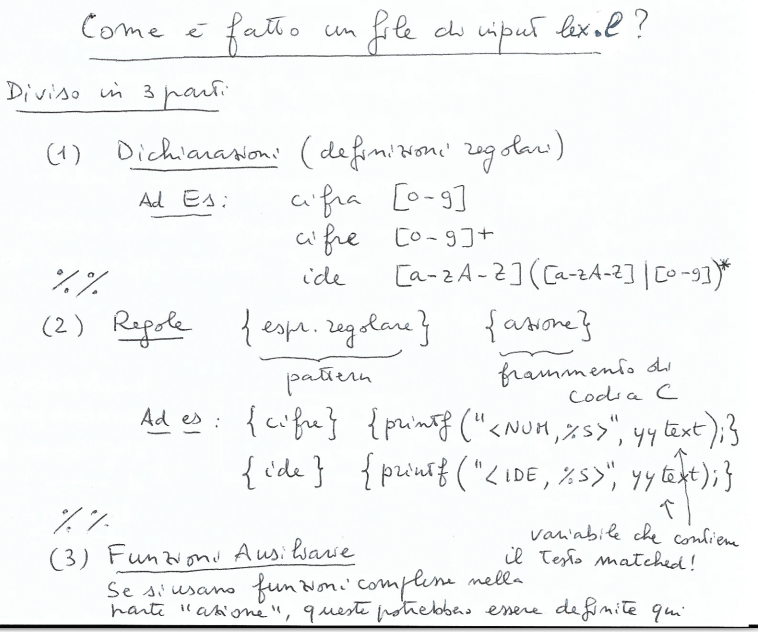 Come è fatto un file di input lex.l?
Diviso in 3 parti
(1) Dichiarazioni (definizioni regolari)
Ad Es: cifra [0-9]
cifre [0-9]+
ide [a-zA-Z]([a-zA-Z]|[0-9])*
%%
(2) Regole {espr. regolare} {azione}
pattern frammento di
codice C
Ad es: {cifre} {printf("<NUM,%s>", yytext);}
{ide} {printf("<IDE,%s>", yytext);}
%%
variabile che contiene
(3) Funzioni Ausiliarie il testo matched!
Se si usano funzioni complesse nella
parte "azione", queste potrebbero essere definite qui